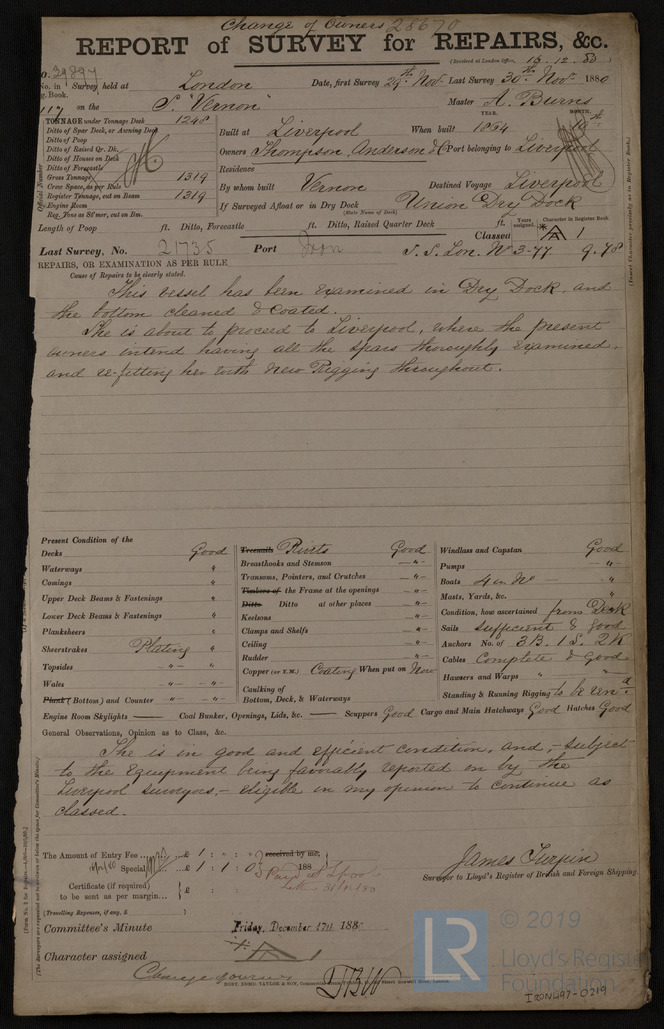 Change of Owners 28670
REPORT of SURVEY for REPAIRS, &c.
(Received at London Office, 16.12.80)
No. 39897
No. in Survey held at London Date, first Survey 29th Nov. Last Survey 30th Nov 1880
Reg. Book.
117 on the S "Vernon" Master A. Burns
TONNAGE under Tonnage Deck 1248
Ditto of Spar Deck, or Awning Deck
Ditto of Poop
Ditto of Raised Qr. Dk.
Ditto of Houses on Deck
Ditto of Forecastle
Gross Tonnage 1319
Crew Space, as per Rule
Register Tonnage, cut on Beam 1319
Engine Room
Official Number
YEAR. MONTH.
Built at Liverpool When built 1864 10th
Owners Thompson, Anderson & Co Port belonging to Liverpool
Residence
By whom built Vernon Destined Voyage Liverpool
If Surveyed Afloat or in Dry Dock Union Dry Dock
(State Name of Dock)
Length of Poop ft. Ditto, Forecastle ft. Ditto, Raised Quarter Deck ft.
Years assigned. Character in Register Book
Classed A 1
Last Survey, No. 21735 Port Iron S. S. Lon. No 3-77 9.78
REPAIRS, OR EXAMINATION AS PER RULE
Cause of Repairs to be clearly stated.
This vessel has been examined in Dry Dock, and
the bottom cleaned & Coated.
She is about to proceed to Liverpool, where the present
owners intend having all the spars thoroughly examined,
and re-fitting her with New Rigging throughout.
Present Condition of the
Decks Good
Waterways "
Comings "
Upper Deck Beams & Fastenings "
Lower Deck Beams & Fastenings "
Planksheers "
Sheerstrakes Plating "
Topsides " "
Wales " "
Plank (Bottom) and Counter " "
Treenails Rivets Good
Breasthooks and Stemson "
Transoms, Pointers, and Crutches "
Timbers of the Frame at the openings "
Ditto Ditto at other places "
Keelsons "
Clamps and Shelfs "
Ceiling "
Rudder "
Copper (or Y.M.) Coating When put on Now
Caulking of
Bottom, Deck, & Waterways
Windlass and Capstan Good
Pumps "
Boats 4 in No "
Masts, Yards, &c. "
Condition, how ascertained from Deck
Sails Sufficient & good
Anchors No. of 3B. 1S. 2K
Cables Complete & Good
Hawsers and Warps " "
Standing & Running Rigging to be ren'd.
Engine Room Skylights Coal Bunker, Openings, Lids, &c. Scuppers Good Cargo and Main Hatchways Good Hatches Good
General Observations, Opinion as to Class, &c.
She is in good and efficient condition, and, - subject
to the Equipment being favorably reported on by the
Liverpool surveyors, - eligible in my opinion to continue as
classed.
The Amount of Entry Fee £ 1 : : received by me,
Special £ 1 : 1 : 0 188
Certificate (if required)
to be sent as per margin £ :
(Travelling Expenses, if any, £ )
James Turpin
Surveyor to Lloyd's Register of British and Foreign Shipping
Committee's Minute Friday, December 17th 188
Character assigned A 1
Change owners
© 2019
LR Lloyd's Register
Foundation
IRON497-0219